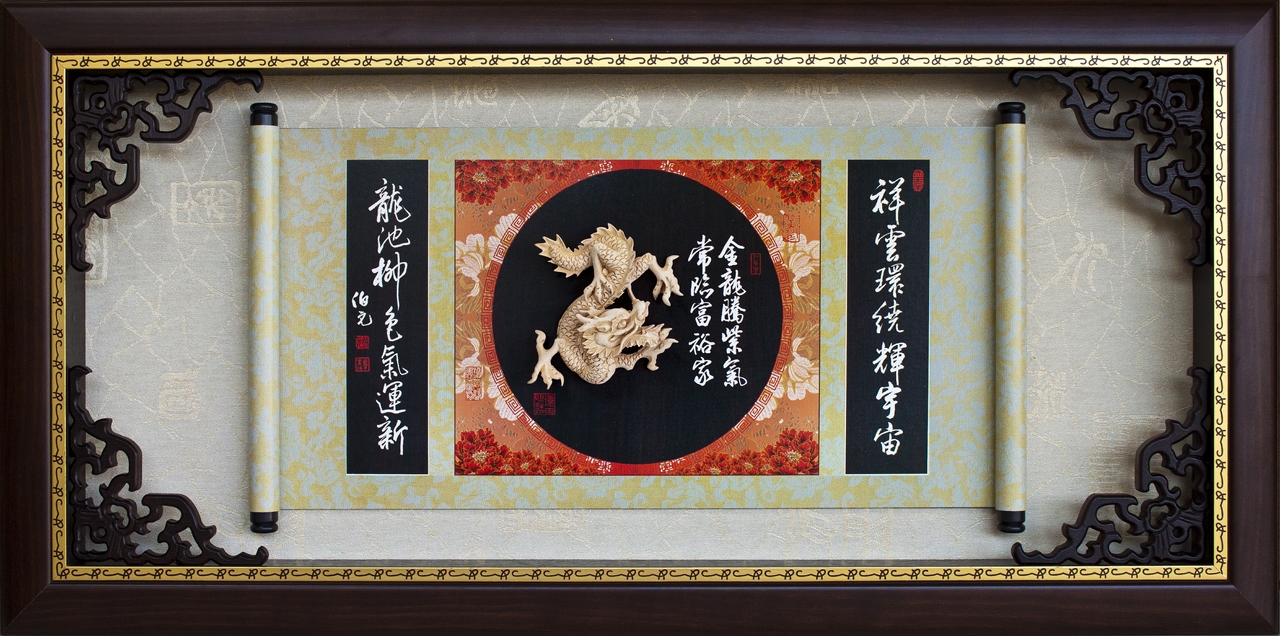 祥雲環繞輝宇宙
金龍騰紫氣
常臨富裕家
龍池柳色氣運新
伯元